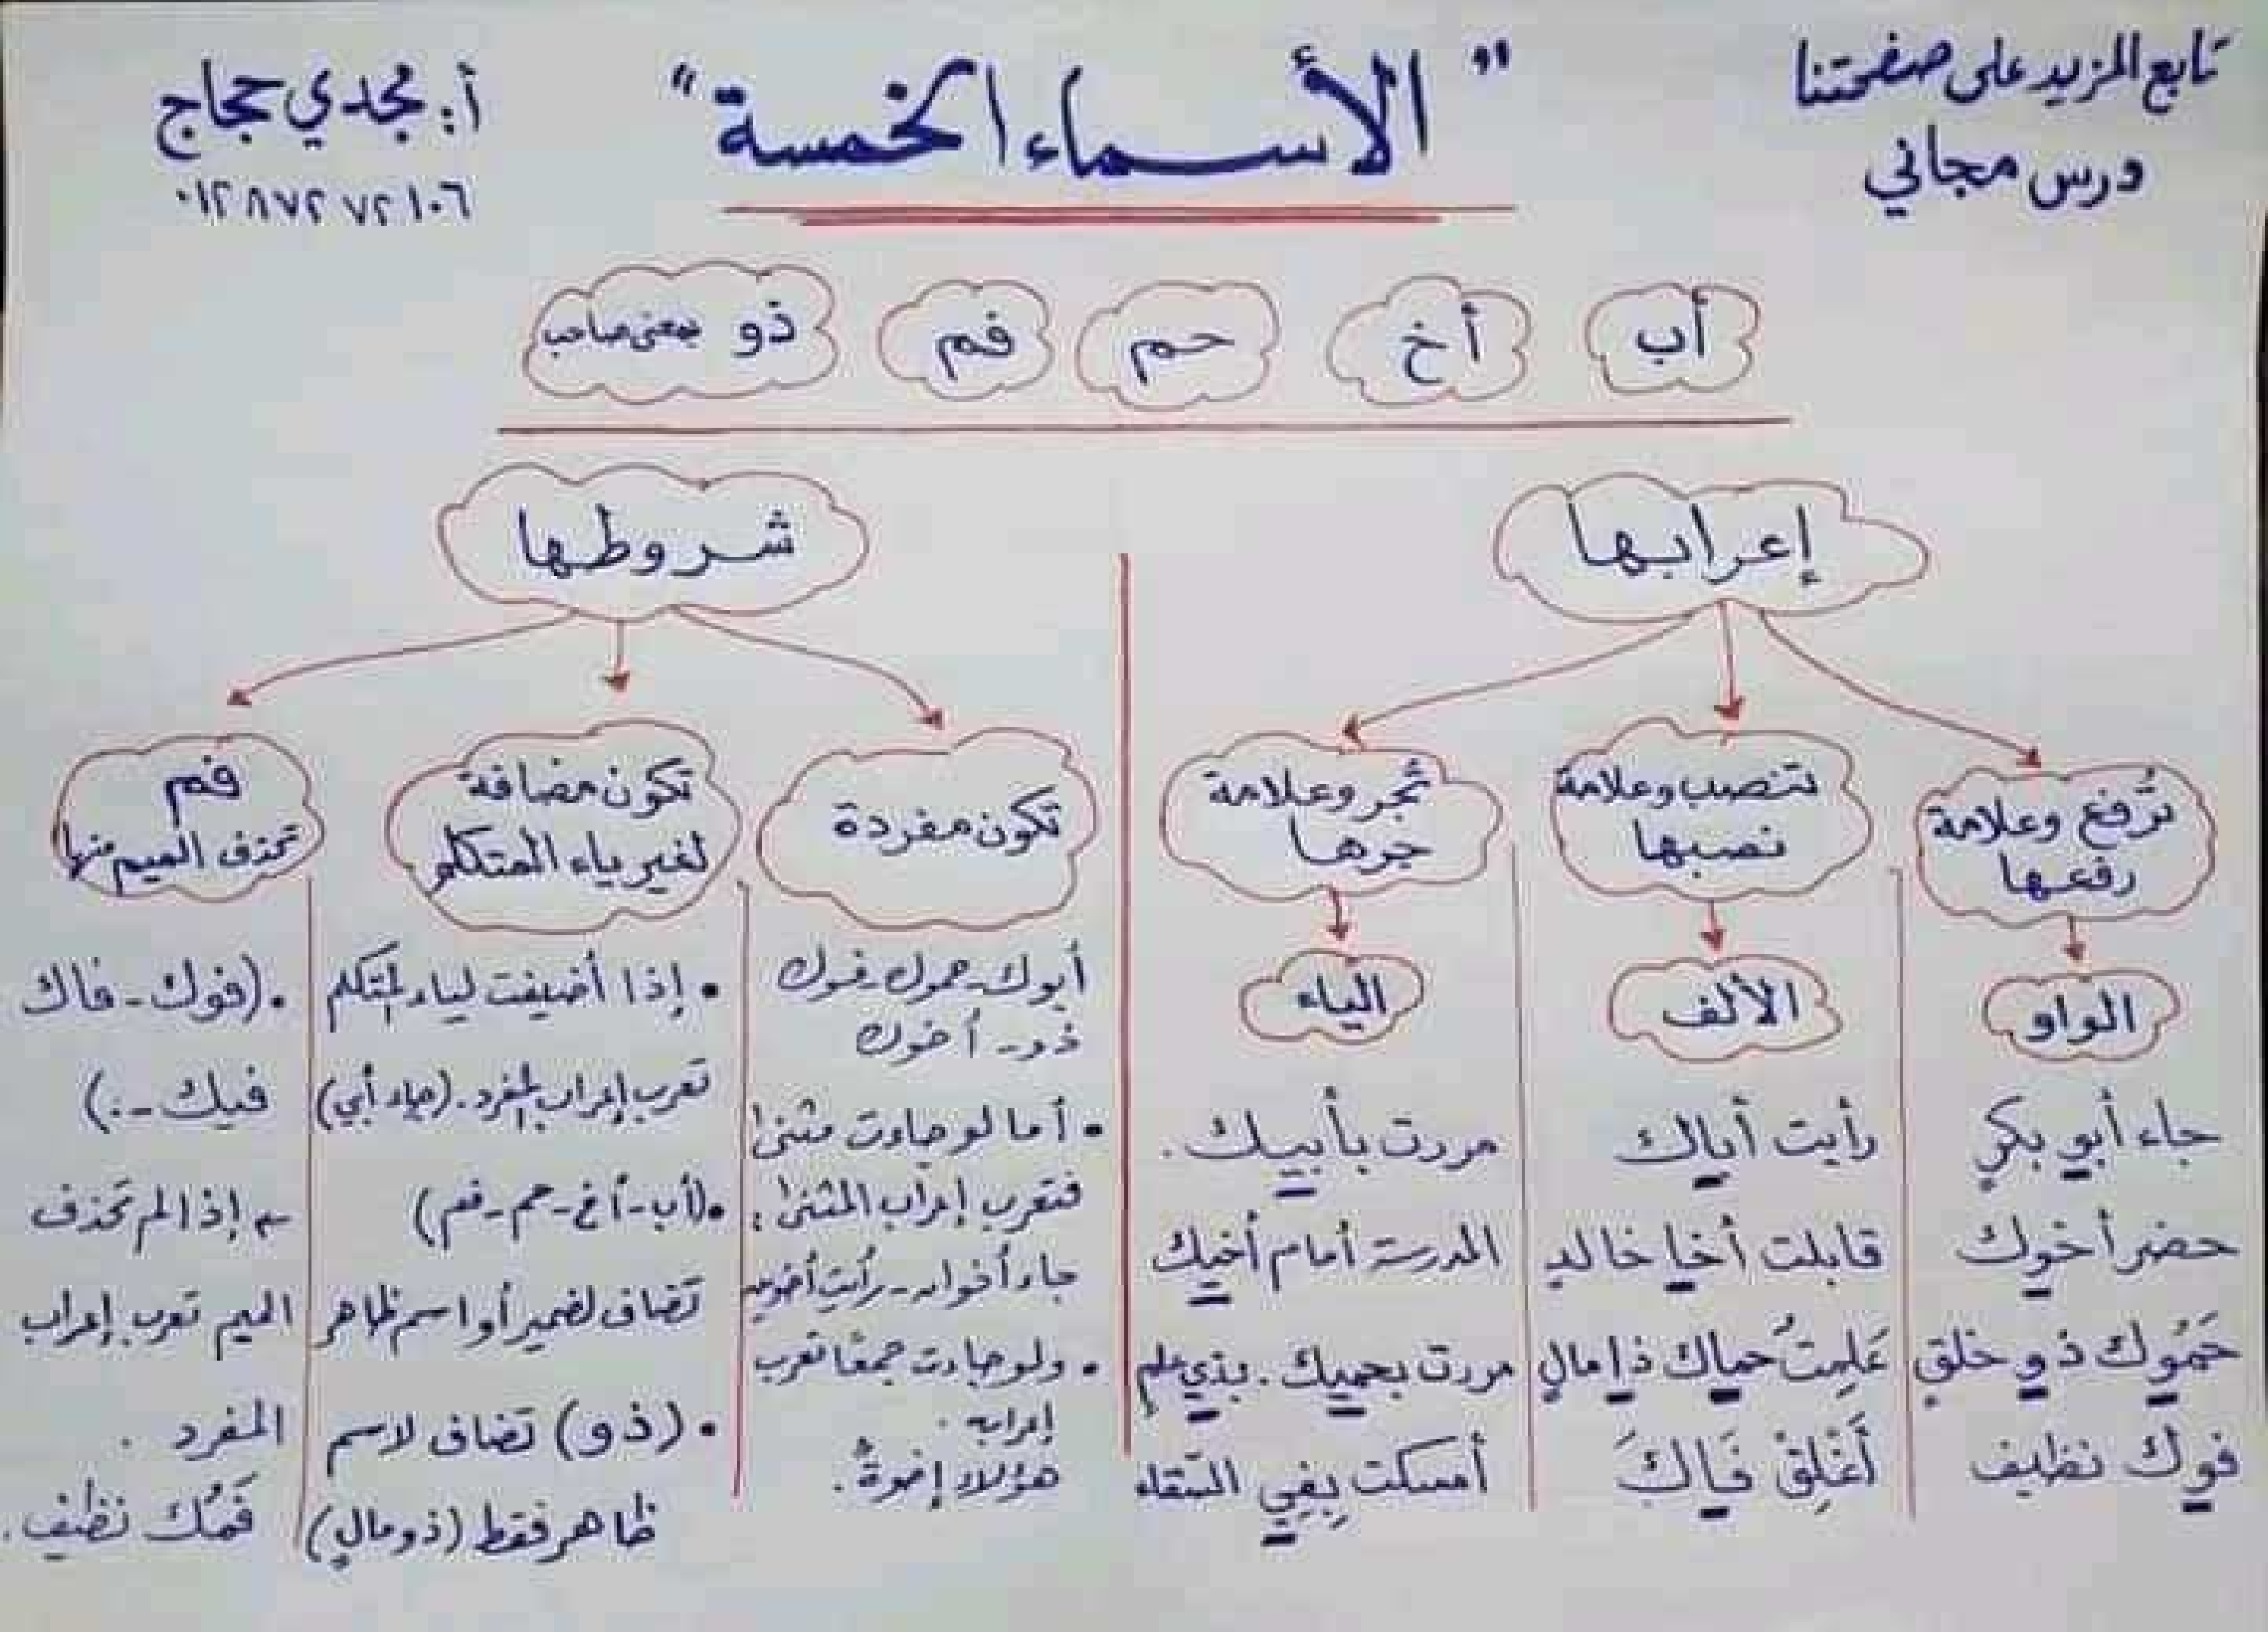 تابع المزيد على صفحتنا
درس مجاني
" الأسماء الخمسة "
أ: مجدي حجاج
٠١٢٨٧٢٧٢١٠٦
أب
أخ
حم
فم
ذو بمعنى صاحب
إعرابها
تُرفع وعلامة
رفعها
الواو
جاء أبو بكرٍ
حضر أخوك
حَمُوك ذو خلقٍ
فوك نظيف
تنصب وعلامة
نصبها
الألف
رأيت أباك
قابلت أخا خالد
عَلِمتُ حماك ذا مالٍ
أَغْلِقْ فَاكَ
تُجر وعلامة
جرها
الياء
مررت بأبيك .
المدرسة أمام أخيك
مررت بحميك . بذي علمٍ
أمسكت بِفِي السقاء
شروطها
تكون مفردة
أبوك - حموك - فوك
ذو - أخوك
• أما لو جاءت مثنى
فتعرب إعراب المثنى :
جاء أخوان - رأيت أخوين
• ولو جاءت جمعًا تعرب
إعرابه .
هؤلاء إخوةٌ .
تكون مضافة
لغير ياء المتكلم
• إذا أضيفت لياء المتكلم
تعرب إعراب المفرد . (جاء أبي)
• (أب - أخ - حم - فم)
تُضاف لضمير أو اسم ظاهر
• (ذو) تضاف لاسم
ظاهر فقط (ذو مالٍ)
فم
تحذف الميم منها
• (فوك - فاك
فيك - :)
إذا لم تُحذف
الميم تعرب إعراب
المفرد .
فَمُك نظيف .